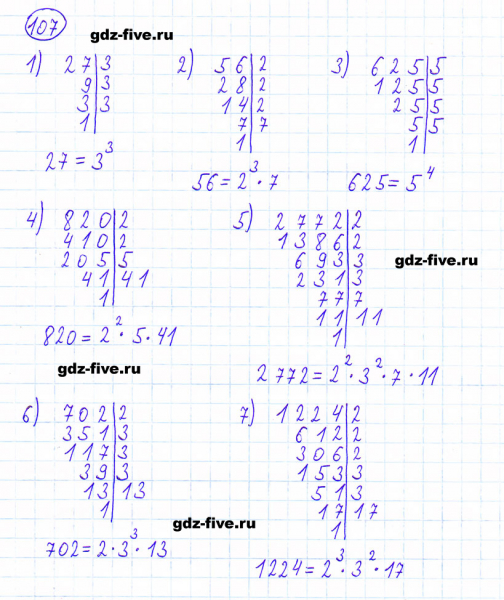 107 gdz-five.ru
1) 27|3
9|3
3|3
1|
27 = 3³
2) 56|2
28|2
14|2
7|7
1|
56 = 2³ · 7
3) 625|5
125|5
25|5
5|5
1|
625 = 5⁴
4) 820|2
410|2
205|5
41|41
1|
820 = 2² · 5 · 41
5) 2772|2
1386|2
693|3
231|3
77|7
11|11
1|
2772 = 2² · 3² · 7 · 11
gdz-five.ru
gdz-five.ru
6) 702|2
351|3
117|3
39|3
13|13
1|
702 = 2 · 3³ · 13
7) 1224|2
612|2
306|2
153|3
51|3
17|17
1|
1224 = 2³ · 3² · 17
gdz-five.ru